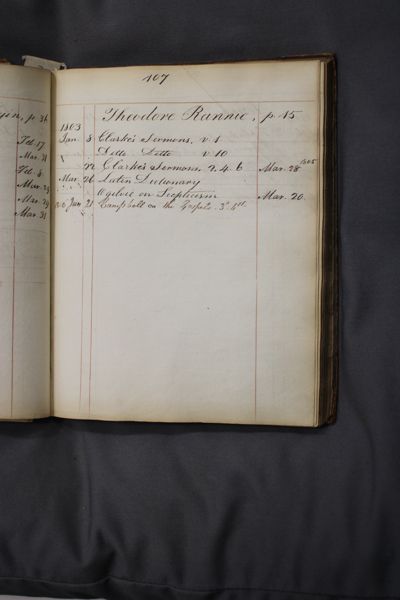 107
gin, p. 36
Theodore Rannie, p. 45
1803
Jan 8 Clarke's Sermons, v. 1
Feb. 17
Ditto Ditto v. 10
Mar. 31
22 Clarke's Sermons 2. 4. 6 Mar. 28 1805
Feb. 8
Mar. 26 Latin Dictionary
Mar. 29
Ogilvie on Scepticism Mar. 20
Mar. 29
Jan 21 Campbell on the Gospels. 3. 4to.
Mar. 31